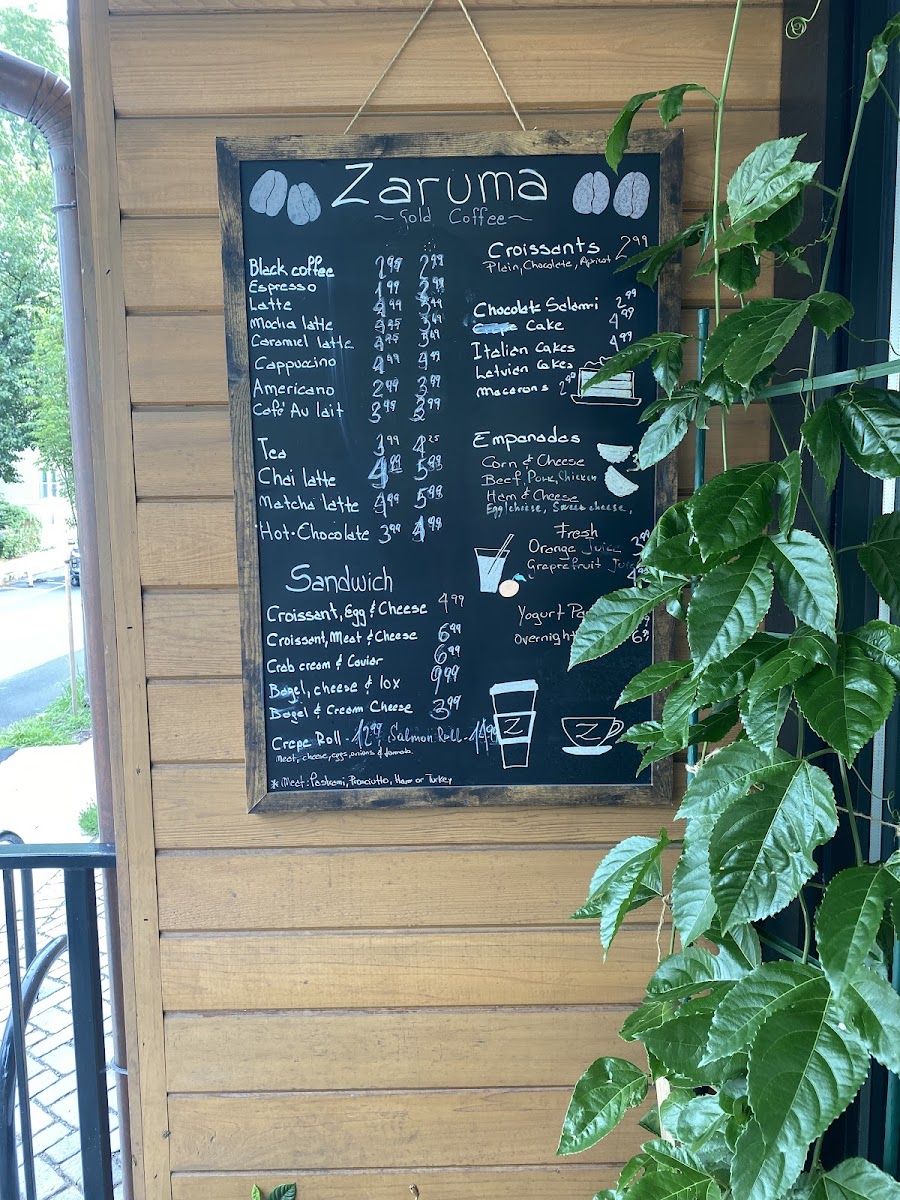 Zaruma
~ Gold Coffee ~
Black coffee 2.99 2.99
Espresso 1.99
Latte
Mocha latte
Caramel latte
Cappuccino 4.99 4.99
Americano 2.99 3.99
Café Au lait 3.99 3.99
Tea 3.99 4.25
Chai latte 5.99
Matcha latte 4.99 5.99
Hot-Chocolate 3.99 4.99
Sandwich
Croissant, Egg & Cheese 4.99
Croissant, Meat & Cheese 6.99
Crab cream & Caviar 6.99
Bagel, cheese & lox 9.99
Bagel & Cream Cheese 3.99
Crepe Roll - 12.99 Salmon Roll - 14.99
Meat, cheese, eggs, onions & tomato.
* Meat: Pastrami, Prosciutto, Ham or Turkey
Croissants 2.99
Plain, Chocolate, Apricot
Chocolate Salami 2.99
Cake 4.99
Italian Cakes 4.99
Latvian Cakes
Macarons 2.99
Empanadas
Corn & Cheese
Beef, Pork, Chicken
Ham & Cheese
Egg/cheese, Sweet cheese,
Fresh
Orange Juice
Grapefruit
Yogurt
Overnight
Z
Z